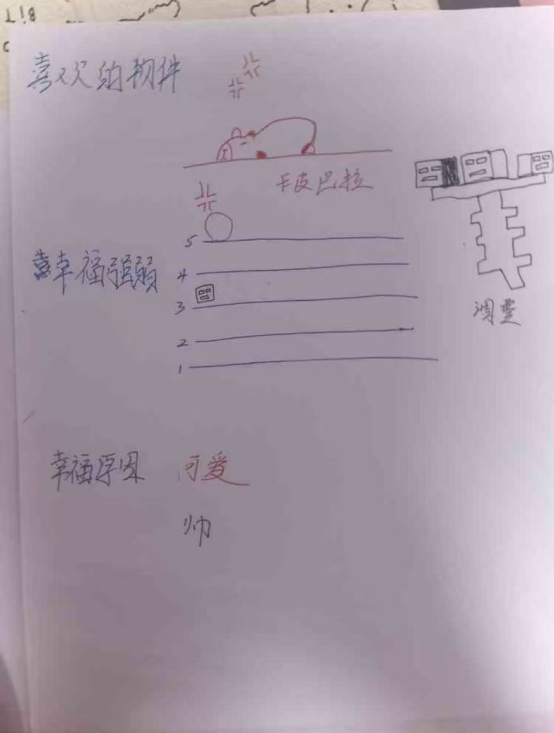 喜欢的物件
卡皮巴拉
幸福强弱
5
4
3
2
1
幸福原因
可爱
帅